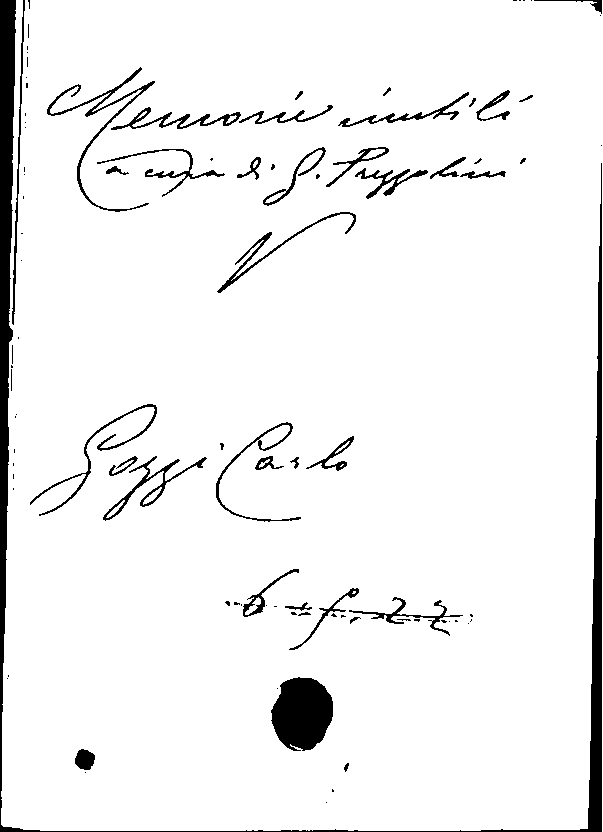 Memorie inutili
a cura di G. Prezzolini
V
Gozzi Carlo